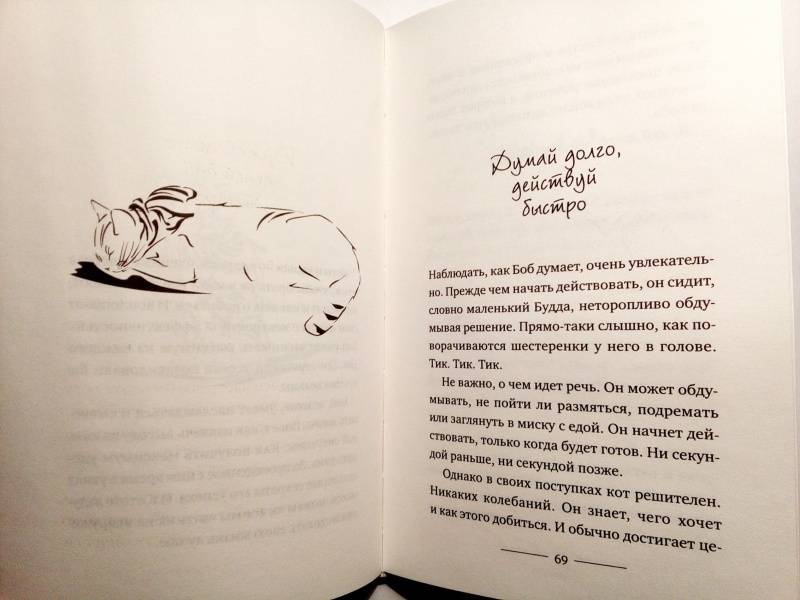 Думай долго,
действуй
быстро
Наблюдать, как Боб думает, очень увлекатель-
но. Прежде чем начать действовать, он сидит,
словно маленький Будда, неторопливо обду-
мывая решение. Прямо-таки слышно, как по-
ворачиваются шестеренки у него в голове.
Тик. Тик. Тик.
Не важно, о чем идет речь. Он может обду-
мывать, не пойти ли размяться, подремать
или заглянуть в миску с едой. Он начнет дей-
ствовать, только когда будет готов. Ни секун-
дой раньше, ни секундой позже.
Однако в своих поступках кот решителен.
Никаких колебаний. Он знает, чего хочет
и как этого добиться. И обычно достигает це-
69